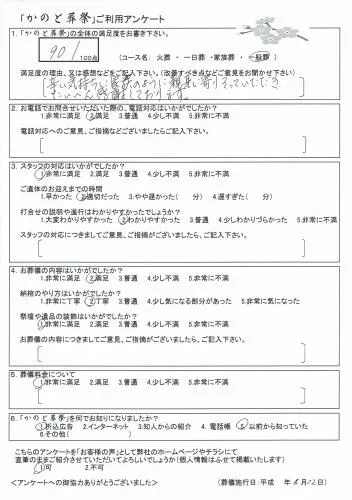 「かのと葬祭」ご利用アンケート
1.「かのと葬祭」の全体の満足度をお書き下さい。
90 / 100点 (コース名: 火葬 ・ 一日葬 ・ 家族葬 ・ 一般葬)
満足度の理由、又は感想などをご記入下さい。(改善すべき点などご意見をお聞かせ下さい)
辛い気持ちを家族のように親身に寄りそっていただき
たいへん感謝しております。
2.お電話でお問合せいただいた際の、電話対応はいかがでしたか?
1.非常に満足 2.満足 3.普通 4.少し不満 5.非常に不満
電話対応へのご意見、ご指摘などございましたらご記入下さい。
3.スタッフの対応はいかがでしたか?
1.非常に満足 2.満足 3.普通 4.少し不満 5.非常に不満
ご遺体のお迎えまでの時間
1.早かった 2.適切だった 3.やや遅かった( 分) 4.遅すぎた( 分)
打合せの説明や進行はわかりやすかったでしょうか?
1.大変わかりやすかった 2.わかりやすかった 3.普通 4.少しわかりづらかった 5.非常に不満
スタッフの対応につきましてご意見、ご指摘がございましたら、ご記入下さい。
4.お葬儀の内容はいかがでしたか?
1.非常に満足 2.満足 3.普通 4.少し不満 5.非常に不満
納棺のやり方はいかがでしたか?
1.非常に丁寧 2.丁寧 3.普通 4.少し気になる部分があった 5.非常に気になった
祭壇や遺品の装飾はいかがでしたか?
1.非常に満足 2.満足 3.普通 4.少し不満 5.非常に不満
お葬儀の内容につきましてご意見、ご指摘がございましたら、ご記入下さい。
5.葬儀料金について
1.非常に満足 2.満足 3.普通 4.少し不満 5.非常に不満
6.「かのと葬祭」を何でお知りになりましたか?
1.折込広告 2.インターネット 3.知人からの紹介 4.電話帳 5.以前から知っていた
6.その他( )
こちらのアンケートを「お客様の声」として弊社のホームページやチラシにて
直筆のままご紹介させていただいてよろしいでしょうか(個人情報はふせて掲載いたします)
1.可 2.不可
<アンケートへの御協力ありがとうございました> (葬儀施行日:平成 年 8月12日)